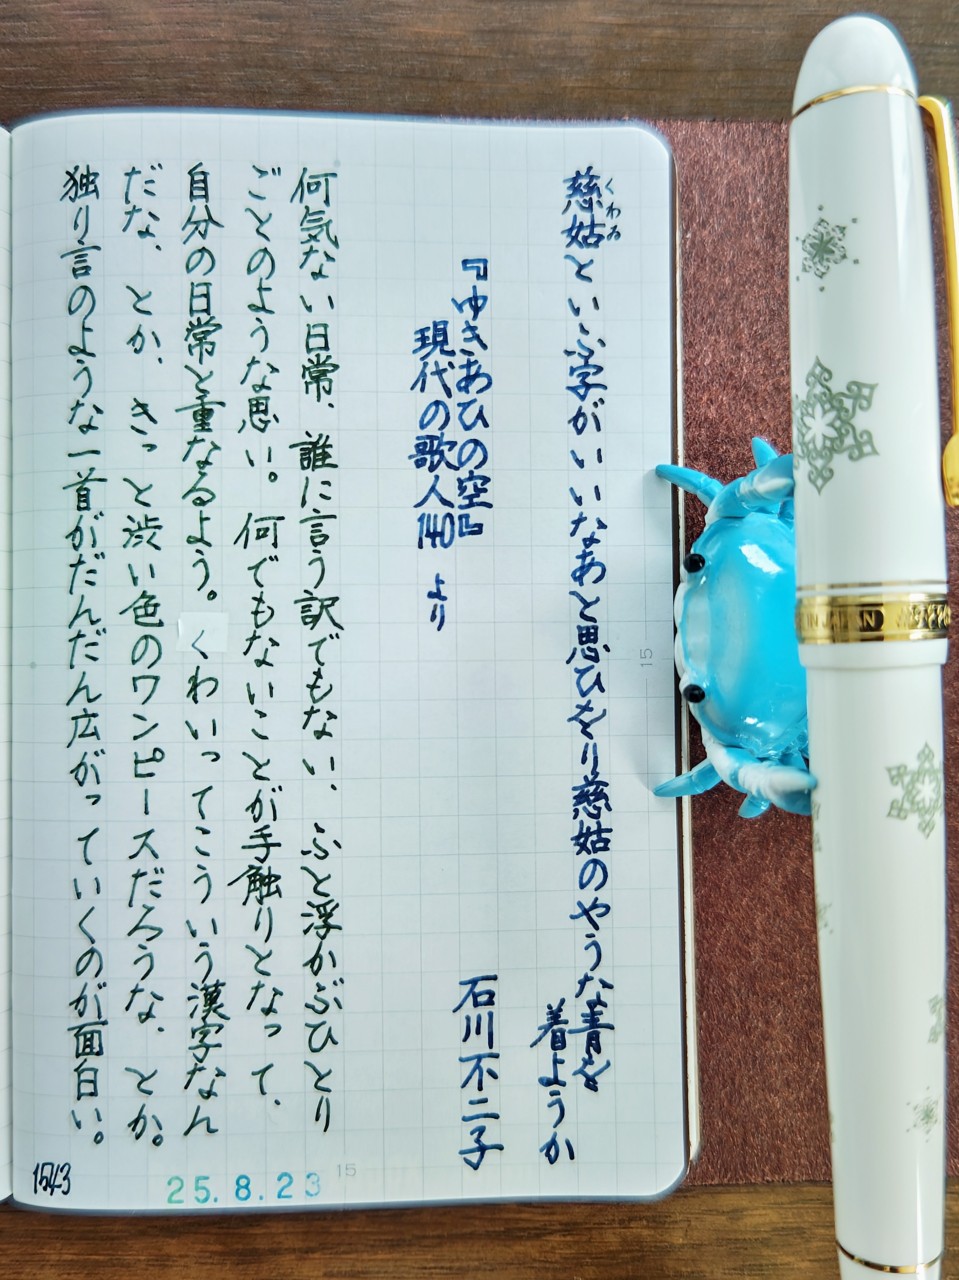 慈姑といふ字がいいなあと思ひをり慈姑のやうな青を
くわゐ
着ようか
『ゆきあひの空』
石川不二子
現代の歌人140 より
何気ない日常、誰に言う訳でもない、ふと浮かぶひとり
ごとのような思い。何でもないことが手触りとなって、
自分の日常と重なるよう。くわいってこういう漢字なん
だな、とか、きっと渋い色のワンピースだろうな、とか。
独り言のような一首がだんだん広がっていくのが面白い。
1543
25.8.23
15
15
IN JAPAN